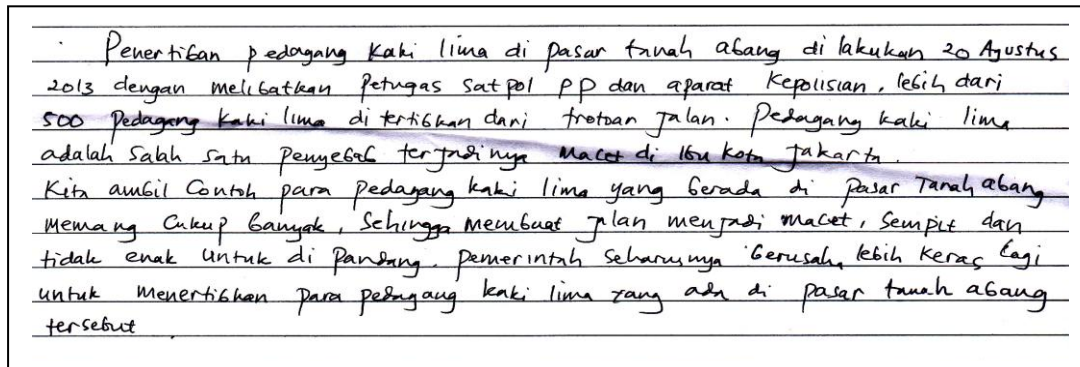 Penertiban pedagang kaki lima di pasar tanah abang di lakukan 20 Agustus
2013 dengan melibatkan petugas satpol PP dan aparat kepolisian, lebih dari
500 pedagang kaki lima di tertibkan dari trotoar jalan. Pedagang kaki lima
adalah salah satu penyebab terjadinya macet di ibu kota Jakarta.
Kita ambil contoh para pedagang kaki lima yang berada di pasar Tanah abang
memang cukup banyak, sehingga membuat jalan menjadi macet, sempit dan
tidak enak untuk di pandang. pemerintah seharusnya berusaha lebih keras lagi
untuk menertibkan para pedagang kaki lima yang ada di pasar tanah abang
tersebut.